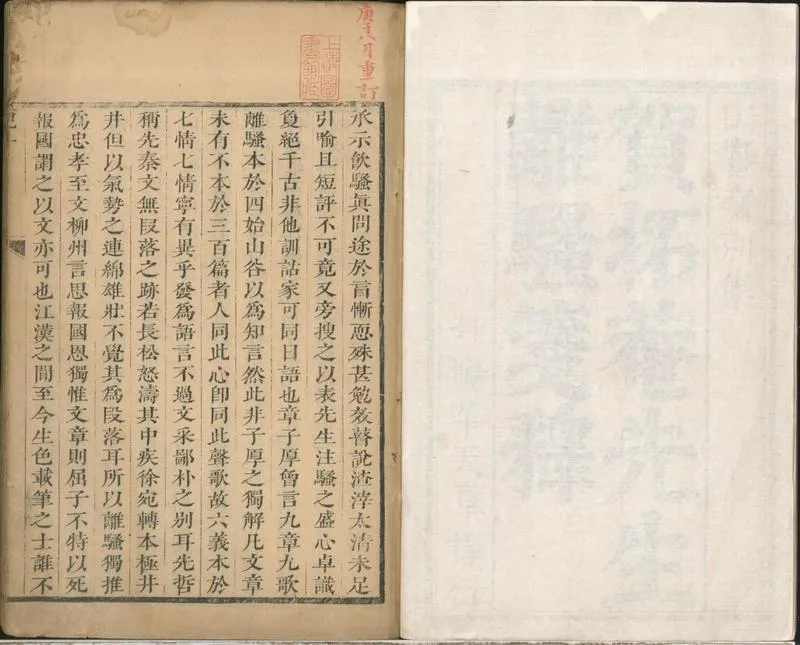 庚八月重訂
上海圖
書館藏
承示飲騷眞問途於盲慚恧殊甚勉效瞽說渣滓太清未足
引喻且短評不可竟又旁搜之以表先生注騷之盛心卓識
夐絕千古非他訓詁家可同日語也章子厚曾言九章九歌
離騷本於四始山谷以爲知言然此非子厚之獨解凡文章
未有不本於三百篇者人同此心卽同此聲歌故六義本於
七情七情寧有異乎發爲語言不過文采鄙朴之别耳先哲
稱先秦文無叚落之跡若長松怒濤其中疾徐宛轉本極井
井但以氣勢之連綿雄壯不覺其爲段落耳所以離騷獨推
爲忠孝至文柳州言思報國恩獨惟文章則屈子不特以死
報國謂之以文亦可也江漢之間至今生色載筆之士誰不